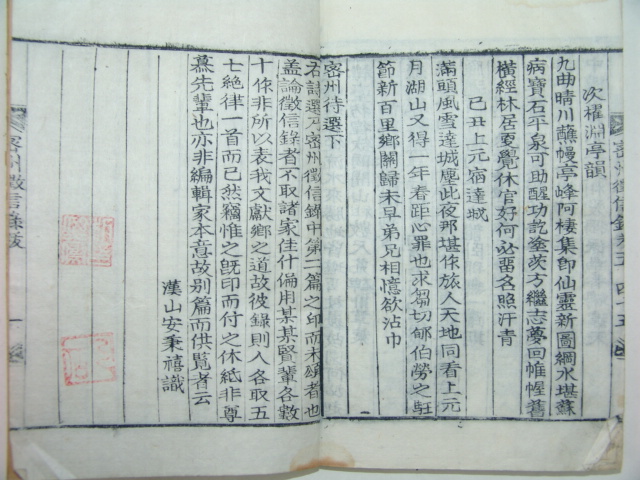 次櫂淵亭韻
九曲晴川蘸幔亭峰阿棲集卽仙靈新圖綱水堪蘇
病寶石平泉可助醒功訖塗茨方繼志夢回帷幄舊
橫經林居憂覺休官好何必留名照汗青
己丑上元宿達城
滿頭風雪達城塵此夜那堪作旅人天地同看上元
月湖山又得一年春距心罪也求芻切郇伯勞之駐
節新百里鄉關歸未早弟兄相憶欲沾巾
密州待選下
右詩選乃密州徵信錄中第二篇之印而未續者也
盖論徵信錄者不取諸家佳什備用某某賢輩各數
十作非所以表我文獻鄉之道故彼錄則人各取五
七絶律一首而已然竊惟之旣印而付之休紙非尊
慕先輩也亦非編輯家本意故別篇而供覧者云
漢山安秉禧識
密州徵信錄卷五 四十五
密州徵信錄跋 一